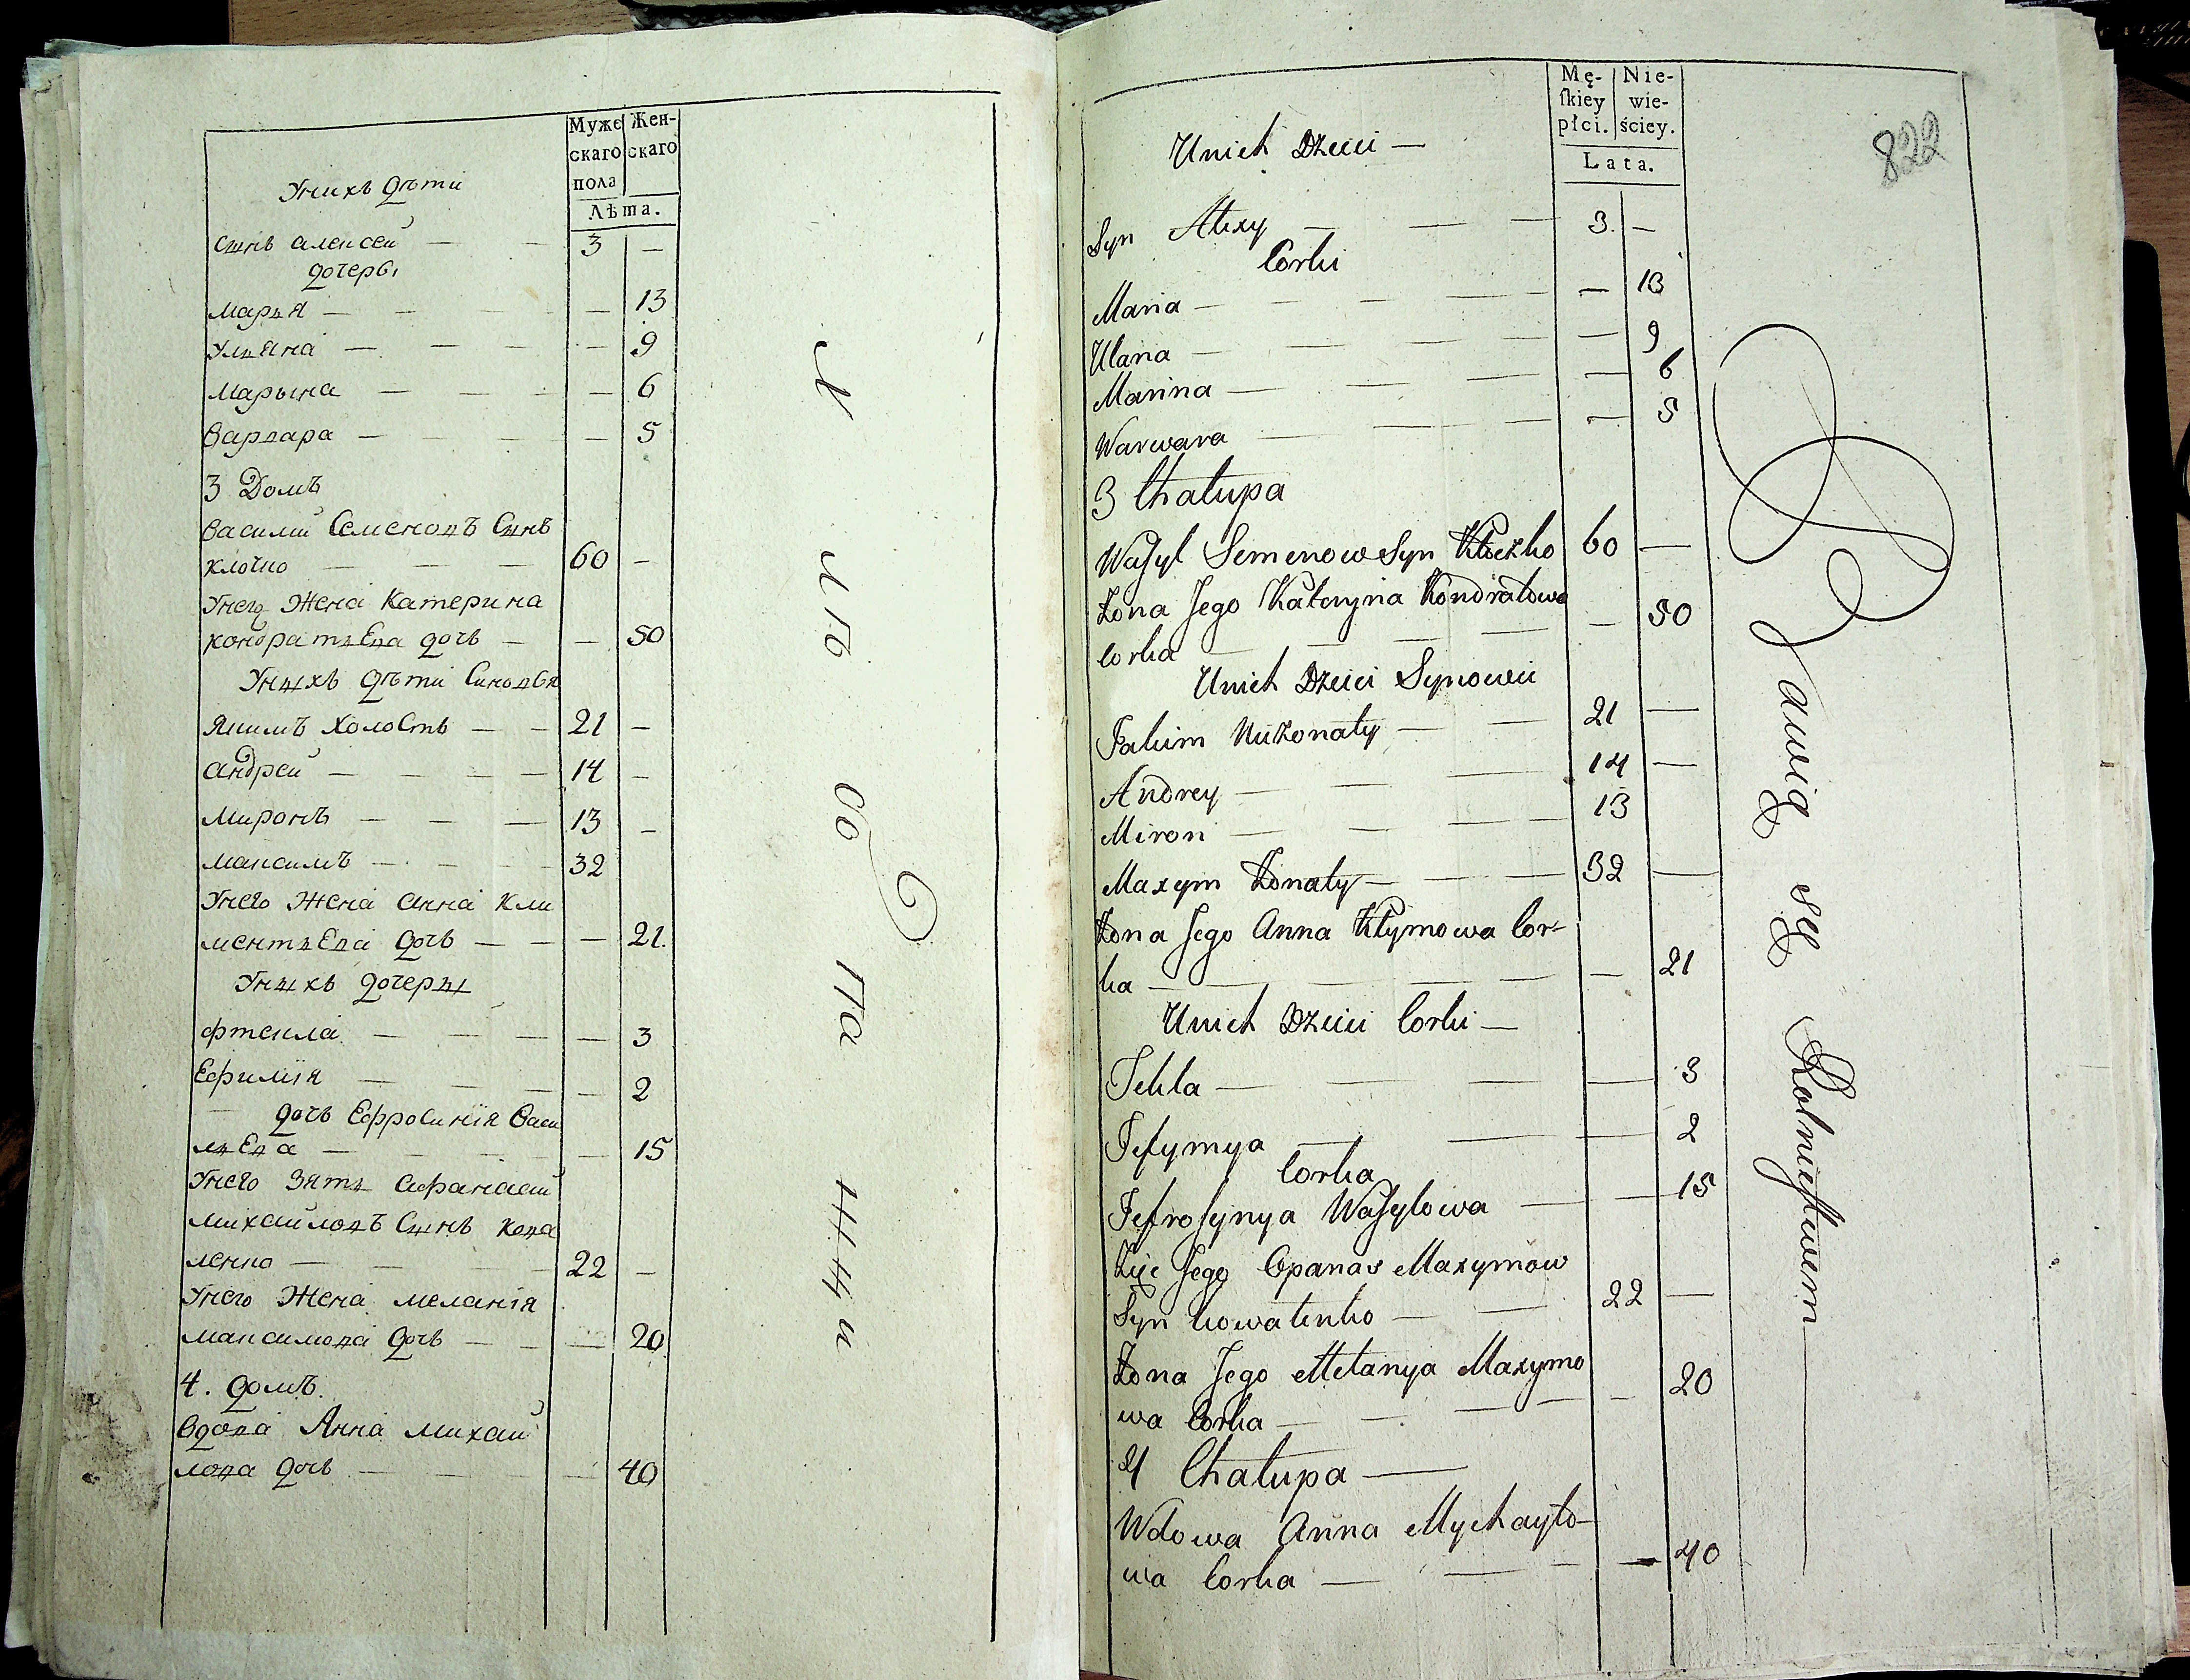 Муже Жен-
скаго скаго
пола
Лѣта.
Унихъ дѣти
сынъ алексей — — 3 —
дочеры
марья — — — — — 13
ульяна — — — — — 9
марына — — — — — 6
варвара — — — — — 5
3 Домъ
василий Семеновъ Сынъ
клочко — — — 60 —
Унего Жена Катерина
кондратьева дочь — — 50
Уныхъ дѣти Синовья
якимъ холостъ — — 21 —
андрей — — — — 14 —
миронъ — — — 13 —
максимъ — — — 32
Унего Жена анна Кли
ментьева дочь — — — 21.
Уныхъ дочеры
фтекла — — — — 3
Ефимія — — — — 2
дочь Ефросинія Васи
льева — — — — 15
Унего Зять афанасий
михайловъ Сынъ кова
ленко — — — 22 —
Унего Жена меланія
максимова дочь — — — 20
4. домъ.
вдова Анна михай
лова дочь — — — 40
Хлѣбопашцы
822
Mę- Nie-
skiey wie-
płci. ściey.
Lata.
Unich Dzieci —
Syn Alexy — — — 3. —
Corki
Maria — — — — — 13
Ulana — — — — — 9
Marina — — — — 6
Warwara — — — — 5
3 Chałupa
Wasyl Semenow Syn Kłoczko 60 —
Żona Jego Kateryna Kondratowa
Corka — — — — 50
Unich Dzieci Synowie
Jakim Nieżonaty — — 21 —
Andrey — — — 14 —
Miron — — — 13
Maxym Żonaty — — — 32 —
Żona Jego Anna Kłymowa Cor-
ka — — — — — 21
Unich Dzieci Corki —
Tekla — — — — 3
Jefymya — — — 2
Corka
Jefrosynya Wasylowa — — 15
Zięć Jego Opanas Maxymow
Syn kowalenko — — 22 —
Żona Jego Melanya Maxymo
wa Corka — — — — — 20
4 Chałupa —
Wdowa Anna Mychayło-
wa Corka — — — — 40
Bawią się Rolnictwem —